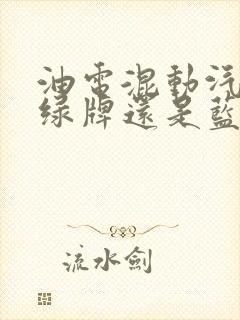 油電混動汽
綠牌還是藍
流水劍